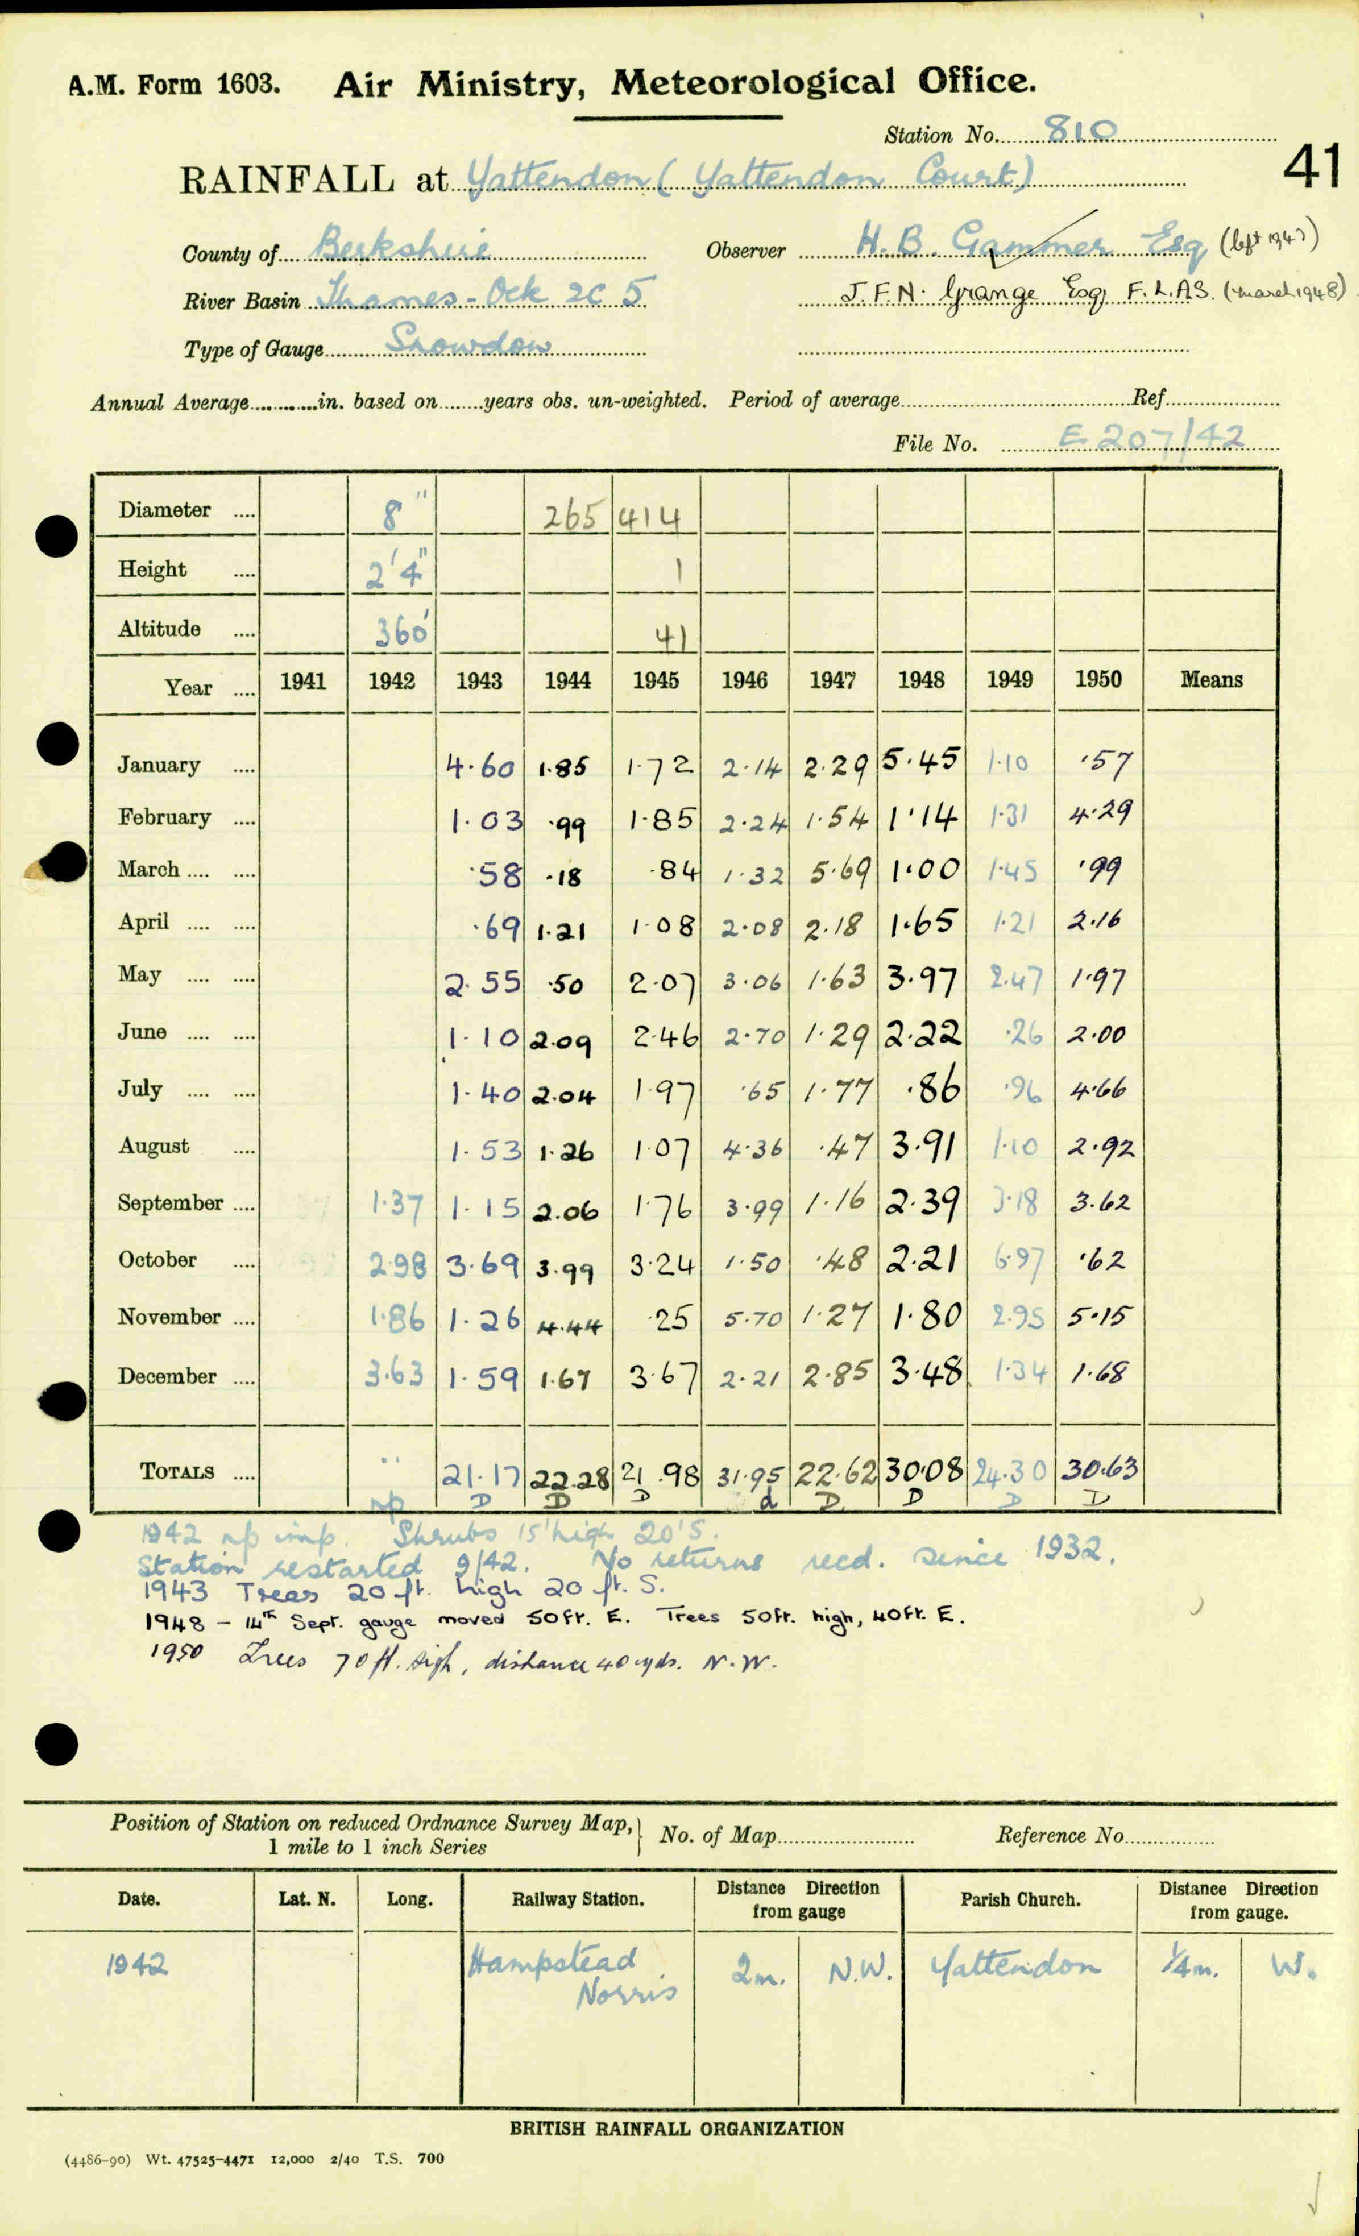 A.M. Form 1603. Air Ministry, Meteorological Office.
Station No. 810
41
RAINFALL at Yattendon (Yattendon Court)
County of Berkshire Observer H. B. Gammer Esq (left 1947)
River Basin Thames - Ock 2C 5 J. F. N. Grange Esq F.L.A.S. (March 1948)
Type of Gauge Snowdon
Annual Average in. based on years obs. un-weighted. Period of average Ref
File No. E 207/42
Diameter 8" 265 414
Height 2'4" 1
Altitude 360' 41
Year 1941 1942 1943 1944 1945 1946 1947 1948 1949 1950 Means
January 4.60 1.85 1.72 2.14 2.29 5.45 1.10 .57
February 1.03 .99 1.85 2.24 1.54 1.14 1.31 4.29
March .58 .18 .84 1.32 5.69 1.00 1.45 .99
April .69 1.21 1.08 2.08 2.18 1.65 1.21 2.16
May 2.55 .50 2.07 3.06 1.63 3.97 2.47 1.97
June 1.10 2.09 2.46 2.70 1.29 2.22 .26 2.00
July 1.40 2.04 1.97 .65 1.77 .86 .96 4.66
August 1.53 1.26 1.07 4.36 .47 3.91 1.10 2.92
September 1.37 1.15 2.06 1.76 3.99 1.16 2.39 3.18 3.62
October 2.98 3.69 3.99 3.24 1.50 .48 2.21 6.97 .62
November 1.86 1.26 4.44 .25 5.70 1.27 1.80 2.95 5.15
December 3.63 1.59 1.67 3.67 2.21 2.85 3.48 1.34 1.68
TOTALS .. 21.17 22.28 21.98 31.95 22.62 30.08 24.30 30.63
np D D D d D D D D
1942 np imp. Shrubs 15' high 20' S.
Station restarted 9/42. No returns recd. since 1932.
1943 Trees 20 ft. high 20 ft. S.
1948 - 14th Sept. gauge moved 50ft. E. Trees 50ft. high, 40ft. E.
1950 Trees 70 ft. high, distance 40 yds. N.W.
Position of Station on reduced Ordnance Survey Map, 1 mile to 1 inch Series No. of Map Reference No.
Date. Lat. N. Long. Railway Station. Distance Direction from gauge Parish Church. Distance Direction from gauge.
1942 Hampstead Norris 2m. N.W. Yattendon 1/4m. W.
BRITISH RAINFALL ORGANIZATION
(4486-90) Wt. 47525-4471 12,000 2/40 T.S. 700